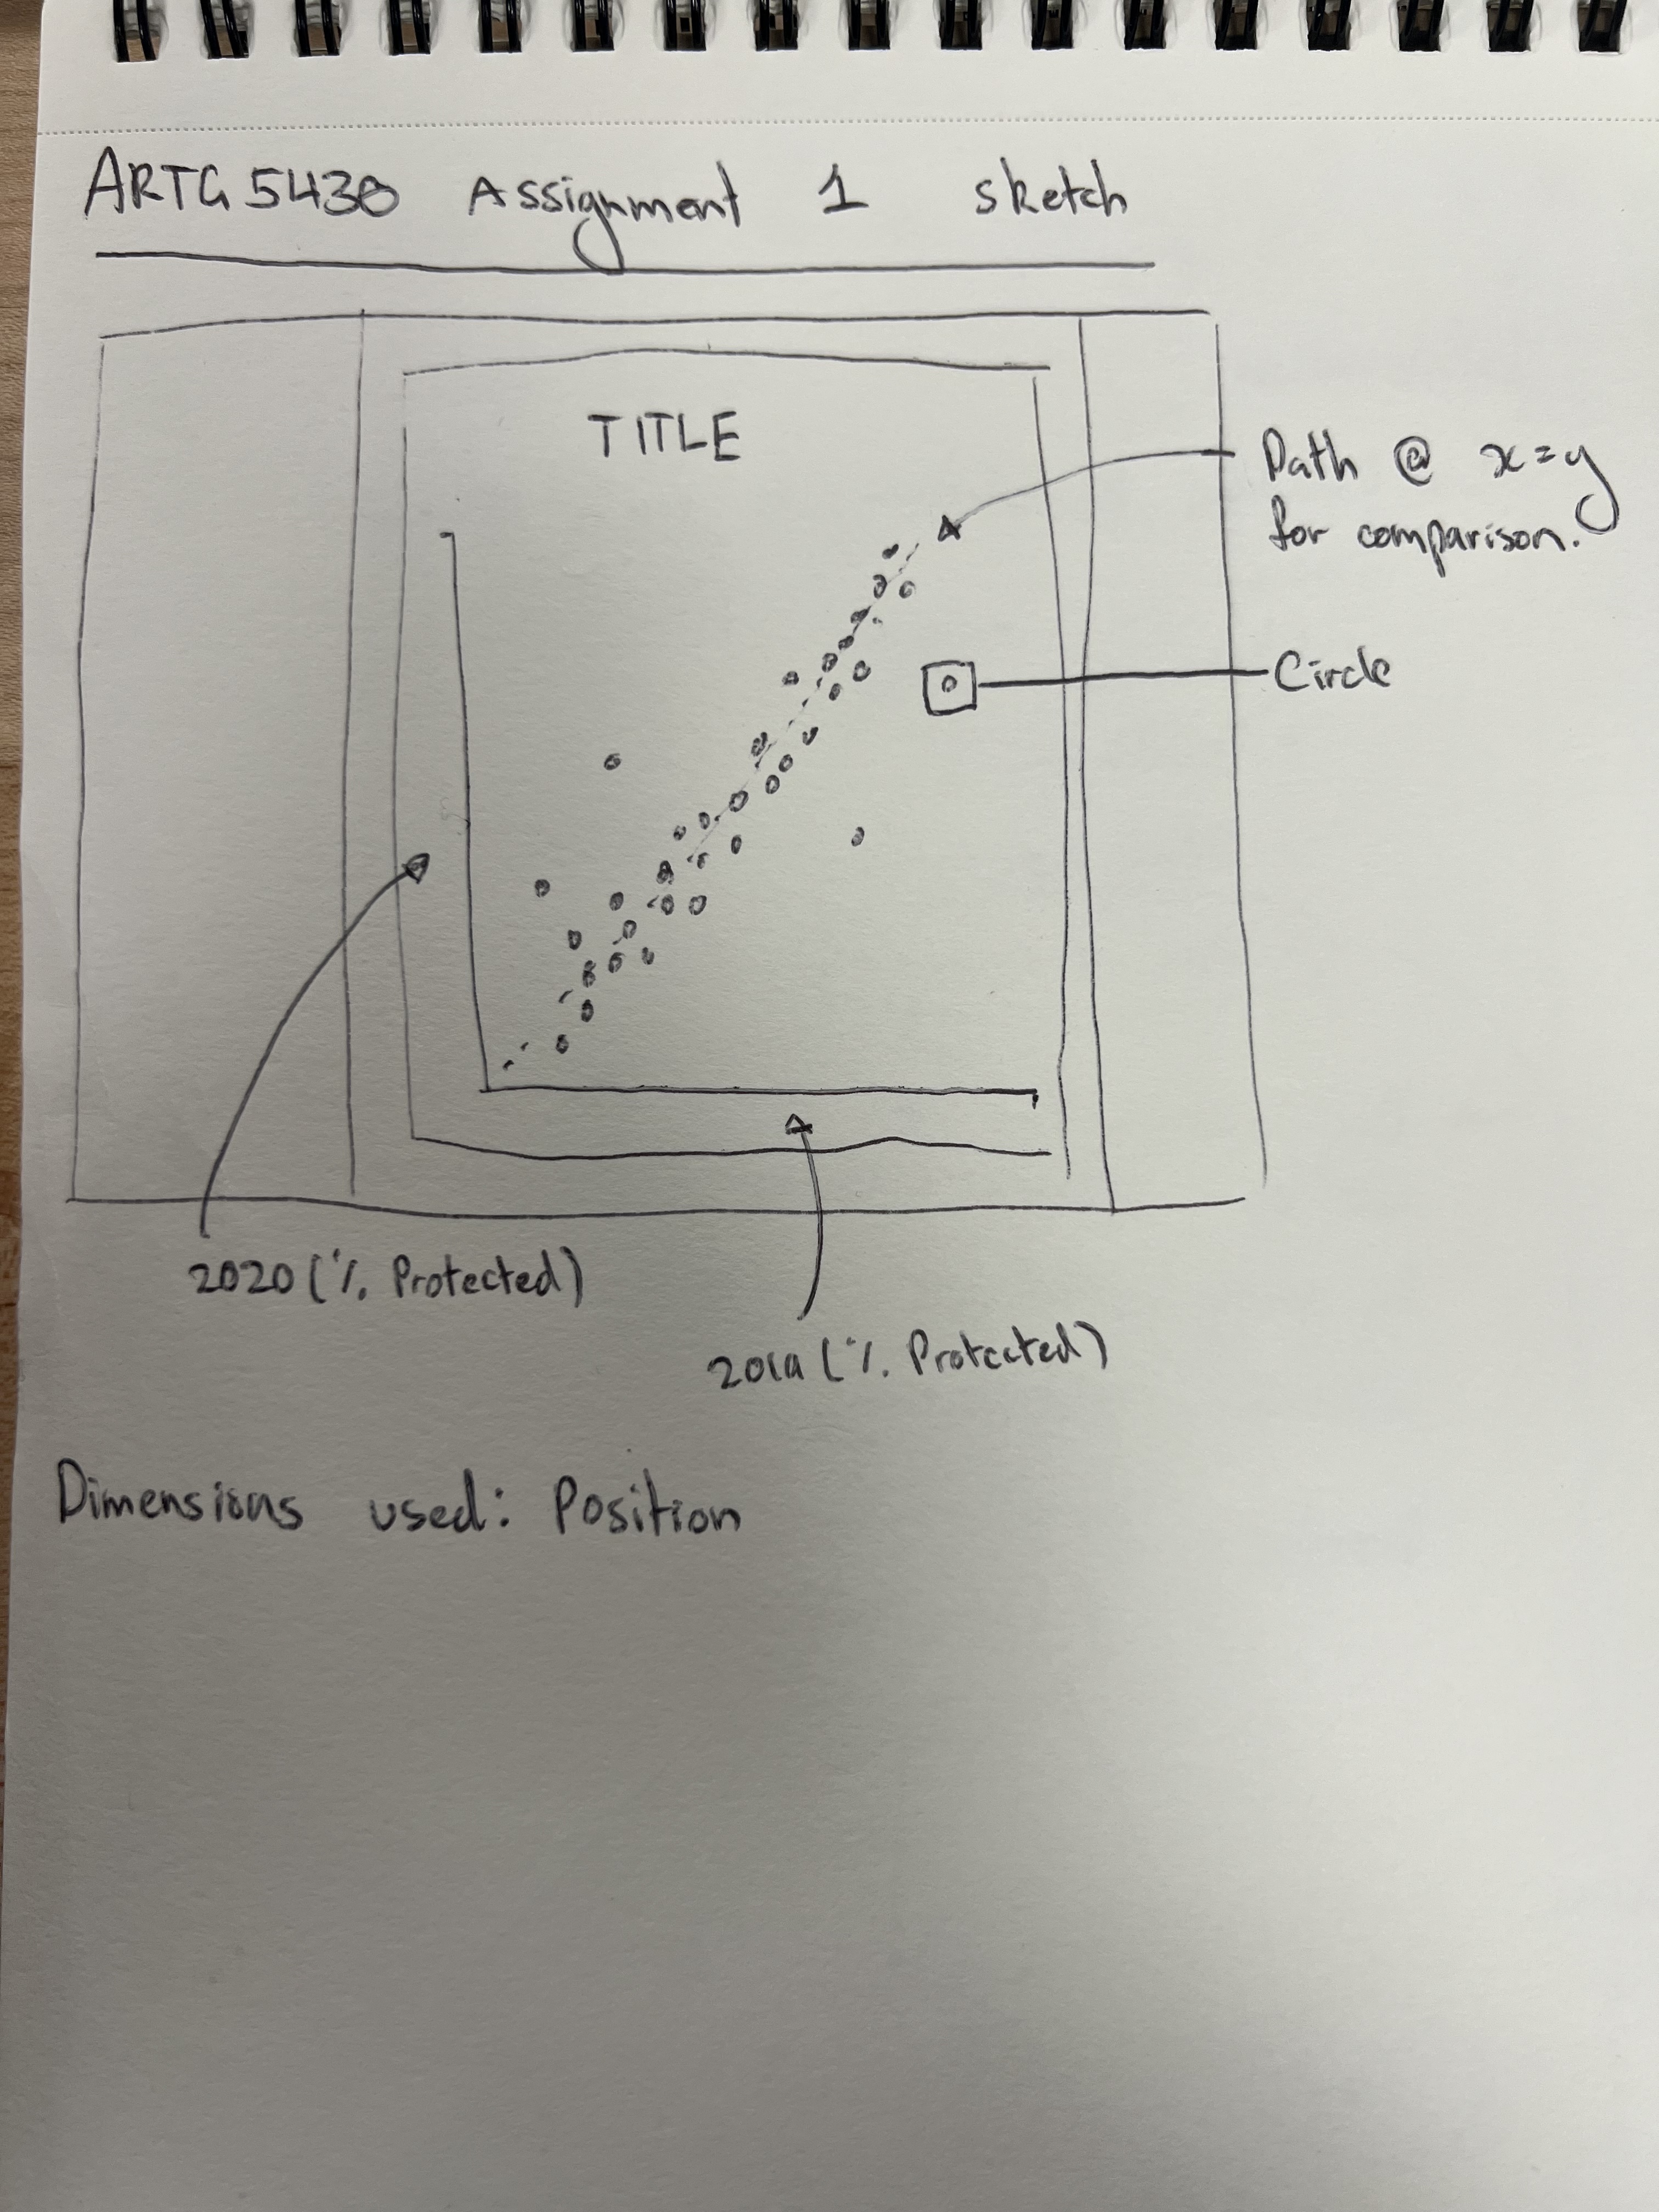 ARTG 5430 Assignment 1 sketch
TITLE
Path @ x=y
for comparison.
Circle
2020 (% Protected)
2019 (% Protected)
Dimensions used: Position